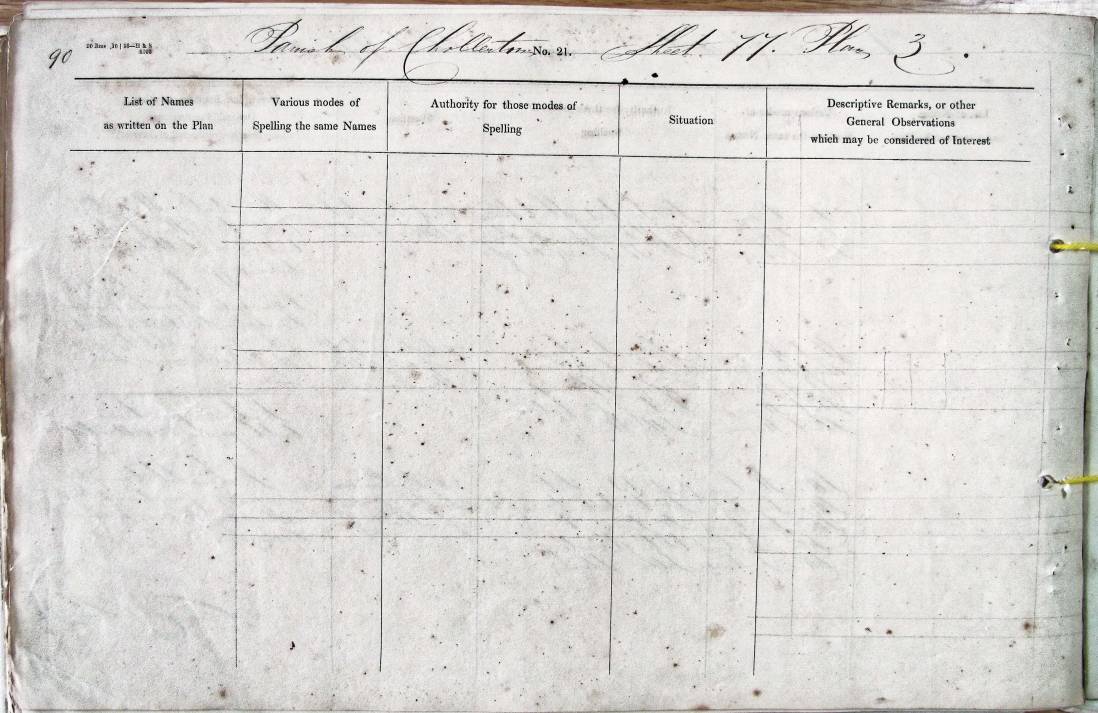 90 Parish of Chollerton No. 21. Sheet 77. Plan 3.
List of Names
as written on the Plan
Various modes of
Spelling the same Names
Authority for those modes of
Spelling
Situation
Descriptive Remarks, or other
General Observations
which may be considered of Interest